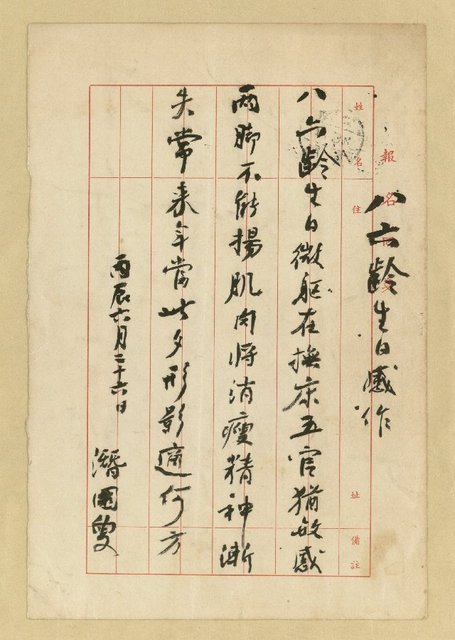 報名
八六齡生日感作
姓名
住址
備註
八六齡生日微軀在撫床五官猶敏感
兩脚不能揚肌肉將消瘦精神漸
失常来年當此夕形影適何方
丙辰六月二十六日
潛園叟